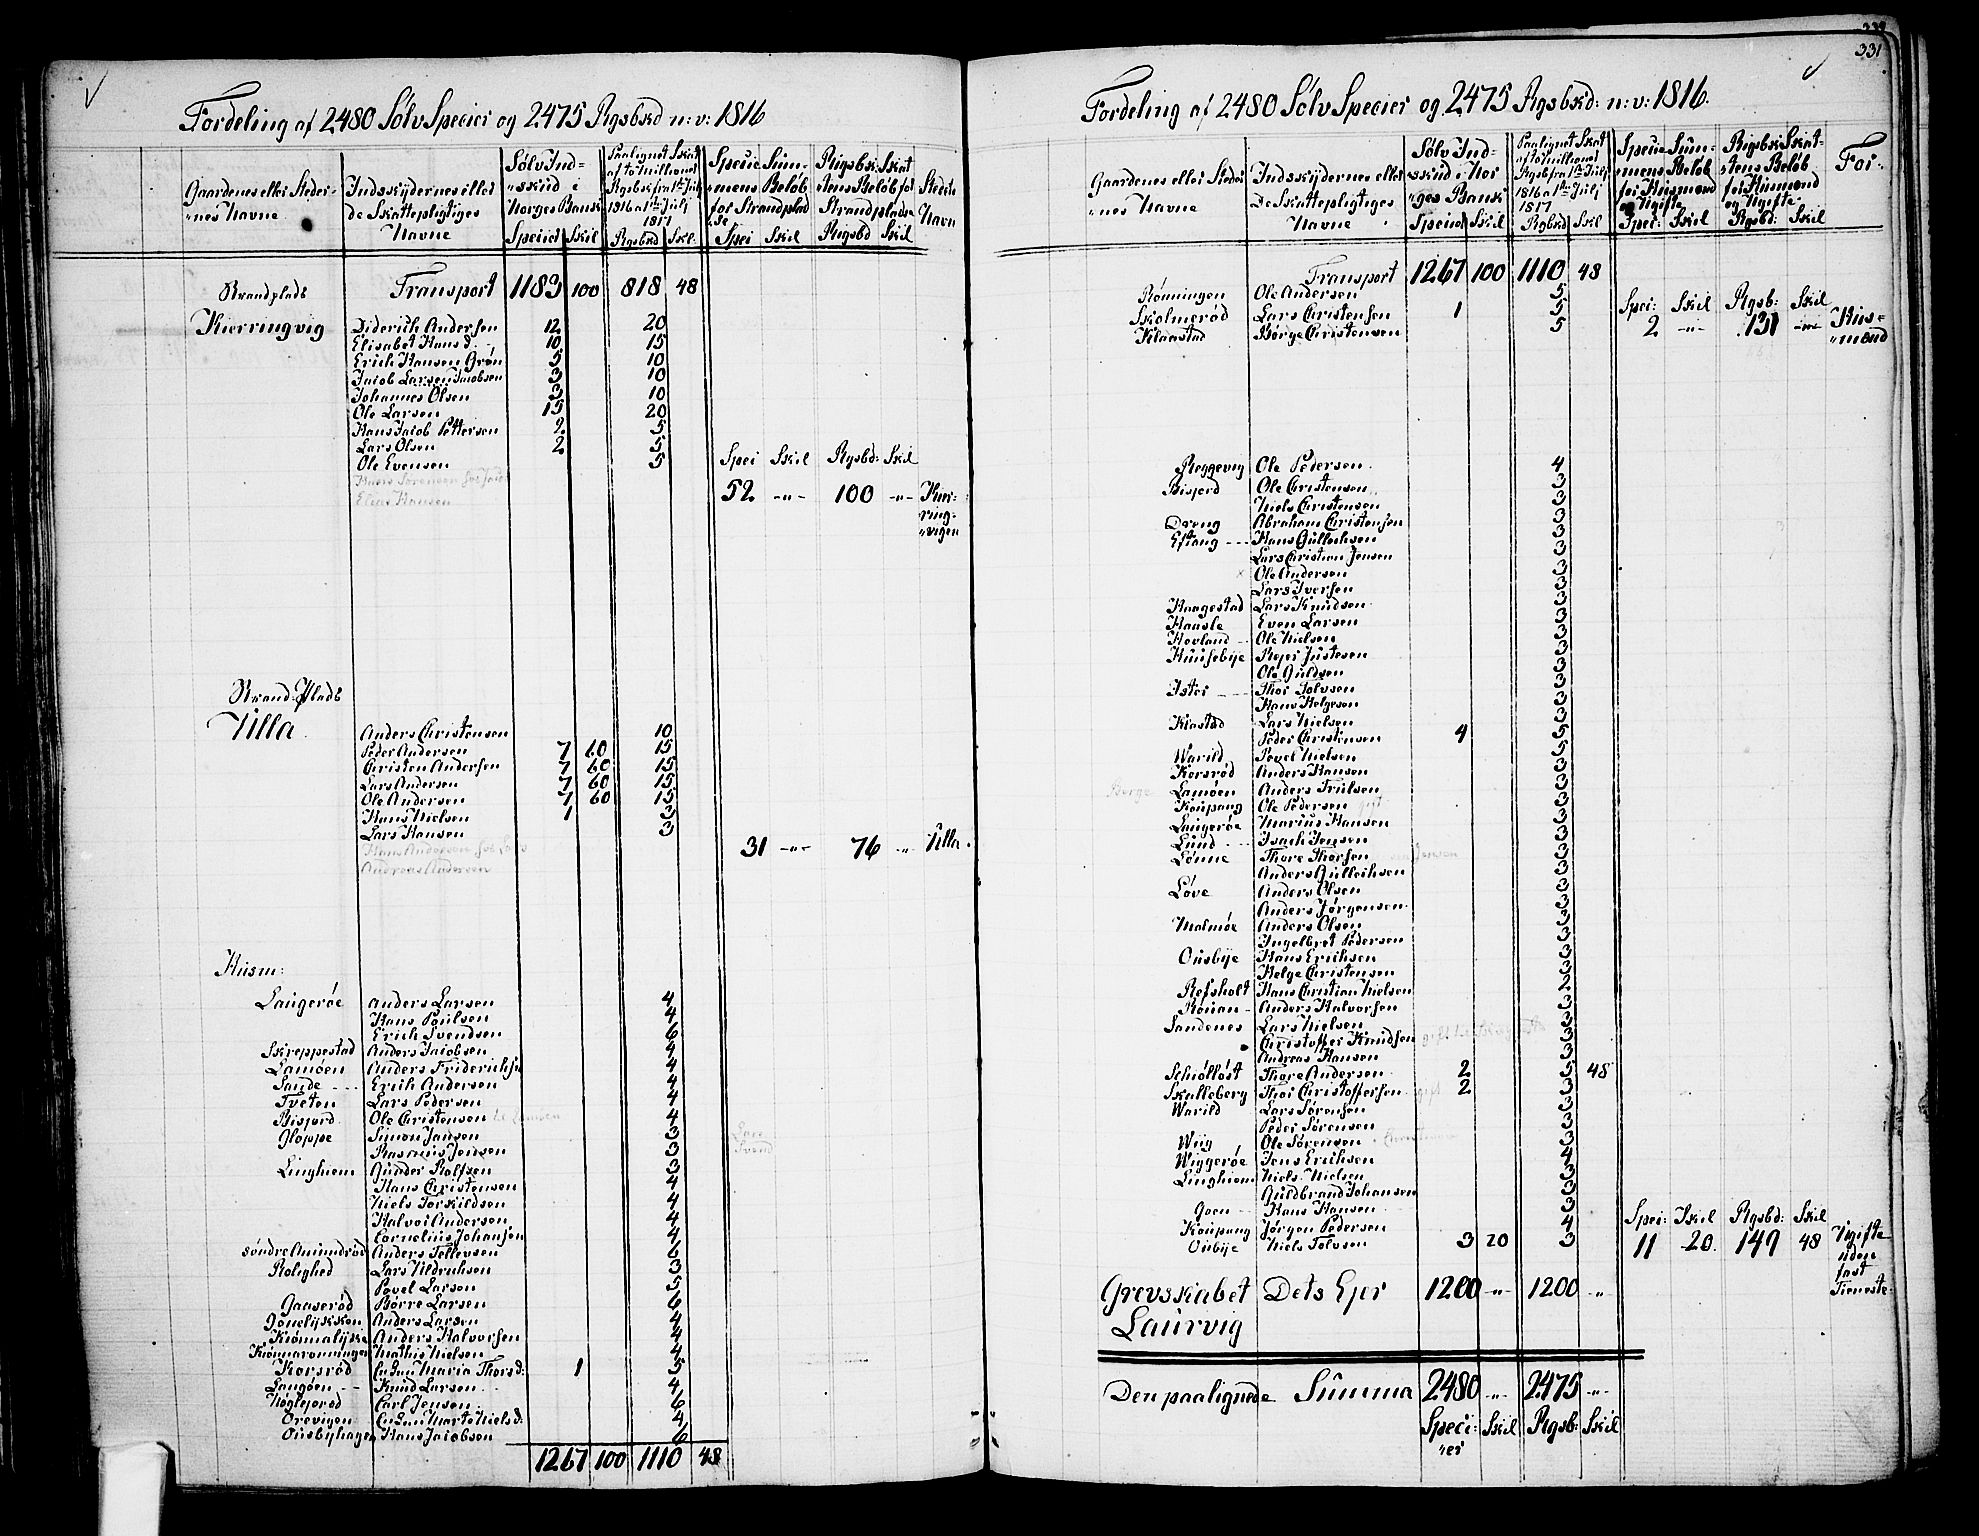 Fordeling af 2480 Sølv Specier og 2475 Rgsbkd n: v: 1816
Gaardenes eller Steder-
nes Navne
Indskydernes eller
de Skattepligtiges
Navne
Sølv Ind-
skud i
Norges Bank
Specier Skil
Paalignet Skat
af to Millioner
Rgsb fra 1ste Julj
1816 a 1ste Julj
1817
Rgsbkd Skl:
Specie Sum-
mens Beløb
for Strandplad
se
Spei Skil
Rigsbk: Skat
tens Beløb for
Strandpladse
Rigsbd Skil
Stedets
Navn
Strandplads Transport 1183 100 818 48
Kierringvig Diderich Andersen 12 20
Elisabet Hansd. 10 15
Erich Hansen Grøn 5 10
Jacob Larsen Jacobsen 3 10
Johannes Olsen 3 10
Ole Larsen 15 20
Hans Jacob Pettersen 2 5
Lars Olsen 2 5
Ole Evensen 5
Spei Skil Rgsbd: Skil
Hans Sørensen
Elias Hansen
52 -"- 100 -"- Kier-
ring-
vigen
Strand Plads
Ulla Anders Christensen 10
Peder Andersen 7 60 15
Christen Andersen 7 60 15
Lars Andersen 7 60 15
Ole Andersen 7 60 15
Hans Nielsen 1 3
Lars Hansen 3
Hans Andersen
31 -"- 76 -"- Ulla.
Andreas Andersen
Husm:
Laugerøe Anders Larsen 4
Hans Poulsen 4
Erich Svendsen 6
Skreppestad Anders Jacobsen 4
Lamøen Anders Friderichsen 4
Sande Erich Andersen 4
Tveten Lars Pedersen 4
Bisjord Ole Christensen 4
Gloppe Simon Jansen 3
Rasmus Jensen 3
Linghiem Gunder Rolfsen 3
Hans Christensen 4
Niels Torkildsen 4
Halvor Andersen 4
Cornelius Johansen 4
søndre Amundrød Anders Tellevsen 6
Rolighed Lars Uldrichsen 3
Povel Larsen 5
Gauserød Børre Larsen 6
Anders Larsen 4
Anders Halvorsen 4
Mathis Nielsen 4
Korsrød Maria Thorsd: 1 5
Langøen Knud Larsen 4
Carl Jensen 6
Orevigen Marte Nielsd: 4
Ousbyhagen Hans Jacobsen 6
1267 100 1110 48
331
Fordeling af 2480 Sølv Specier og 2475 Rgsbkd: n: v: 1816.
Gaardenes eller Steder
nes Navne
Indskydernes eller
De Skattepligtiges
Navne
Sølv Ind-
skud i Nor
ges Bank
Specier Skil
Paalignet Skat
af to Millioner
Rgsb fra 1ste Julj
1816 a 1ste Julj
1817
Rgbkd Skl
Specie Sum-
mens Beløb
for Husmænd
og Ugifte
Spei: Skil
Rigsbk: Skat-
tens Beløb
for Husmænd
og Ugifte
Rgsbd: Skil
For-
Transport 1267 100 1110 48
Rønningen Ole Andersen 5
Skolmerød Lars Christensen 1 5
Spei: Skil Rgsb: Skil
Klaastad Børge Christensen 5
2 -"- 131 -"- Hus-
mænd
Reggevig Ole Pedersen 4
Bisjord Ole Christensen 3
Niels Christensen 3
Dreng Abraham Christensen 3
Eftang Hans Gulleichsen 3
Lars Christian Jensen 3
Ole Andersen 3
Lars Iversen 3
Haagestad Lars Knudsen 3
Hausle Even Larsen 3
Hovland Ole Nielsen 3
Huusebye Rejer Justesen 3
Ole Guldsen 3
Ister Thor Tolvsen 3
Hans Helgesen 3
Kiastad Lars Nielsen 3
Peder Christensen 4 5
Warild Povel Nielsen 5
Korsrød Anders Hansen 3
Berge
Lamøen Anders Frülsen 3
Koupang Ole Pedersen 3
Laugerøe Marius Hansen 3
Lund Isach Jensen 3
Lønne Thore Thorsen 3
Anders Gulleichsen 3
Løve Anders Olsen 3
Anders Jørgensen 3
Malmøe Anders Olsen 3
Ingelbret Pedersen 3
Ousbye Hans Erichsen 3
Helge Christensen 3
Refsholt Hans Christian Nielsen 2
Rouan Anders Halvorsen 3
Sandenes Lars Nielsen 3
Christoffer Knudsen 3
Andreas Hansen 3
Schiølløst Thore Andersen 2 5 48
Skalleberg Thor Christoffersen 2 3
Warild Lars Sørensen 3
Peder Sørensen 3
Wiig Ole Sørensen 4
Wiggerøe Jens Erichsen 4
Linghiem Niels Nielsen 3
Guldbrand Johansen 3
Goen Hans Hansen 3
Koupang Jørgen Pedersen 4
Spei: Skil Rgsbd: Skil
Ousbye Niels Tolvsen 3 20 3
11 20. 149 48 Ugifte
uden
fast
Tieneste:
Grevskabet Dets Ejer 1200 -"- 1200 -"-
Laurvig
Den paalignede Summa 2480 -"- 2475 -"-
Speci- Skil Rgsb: Skil
er